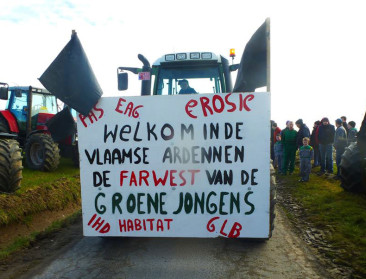 PAS EAG EROSIE
WELKOM IN DE
VLAAMSE ARDENNEN
DE FARWEST VAN DE
GROENE JONGENS
IHD HABITAT GLB